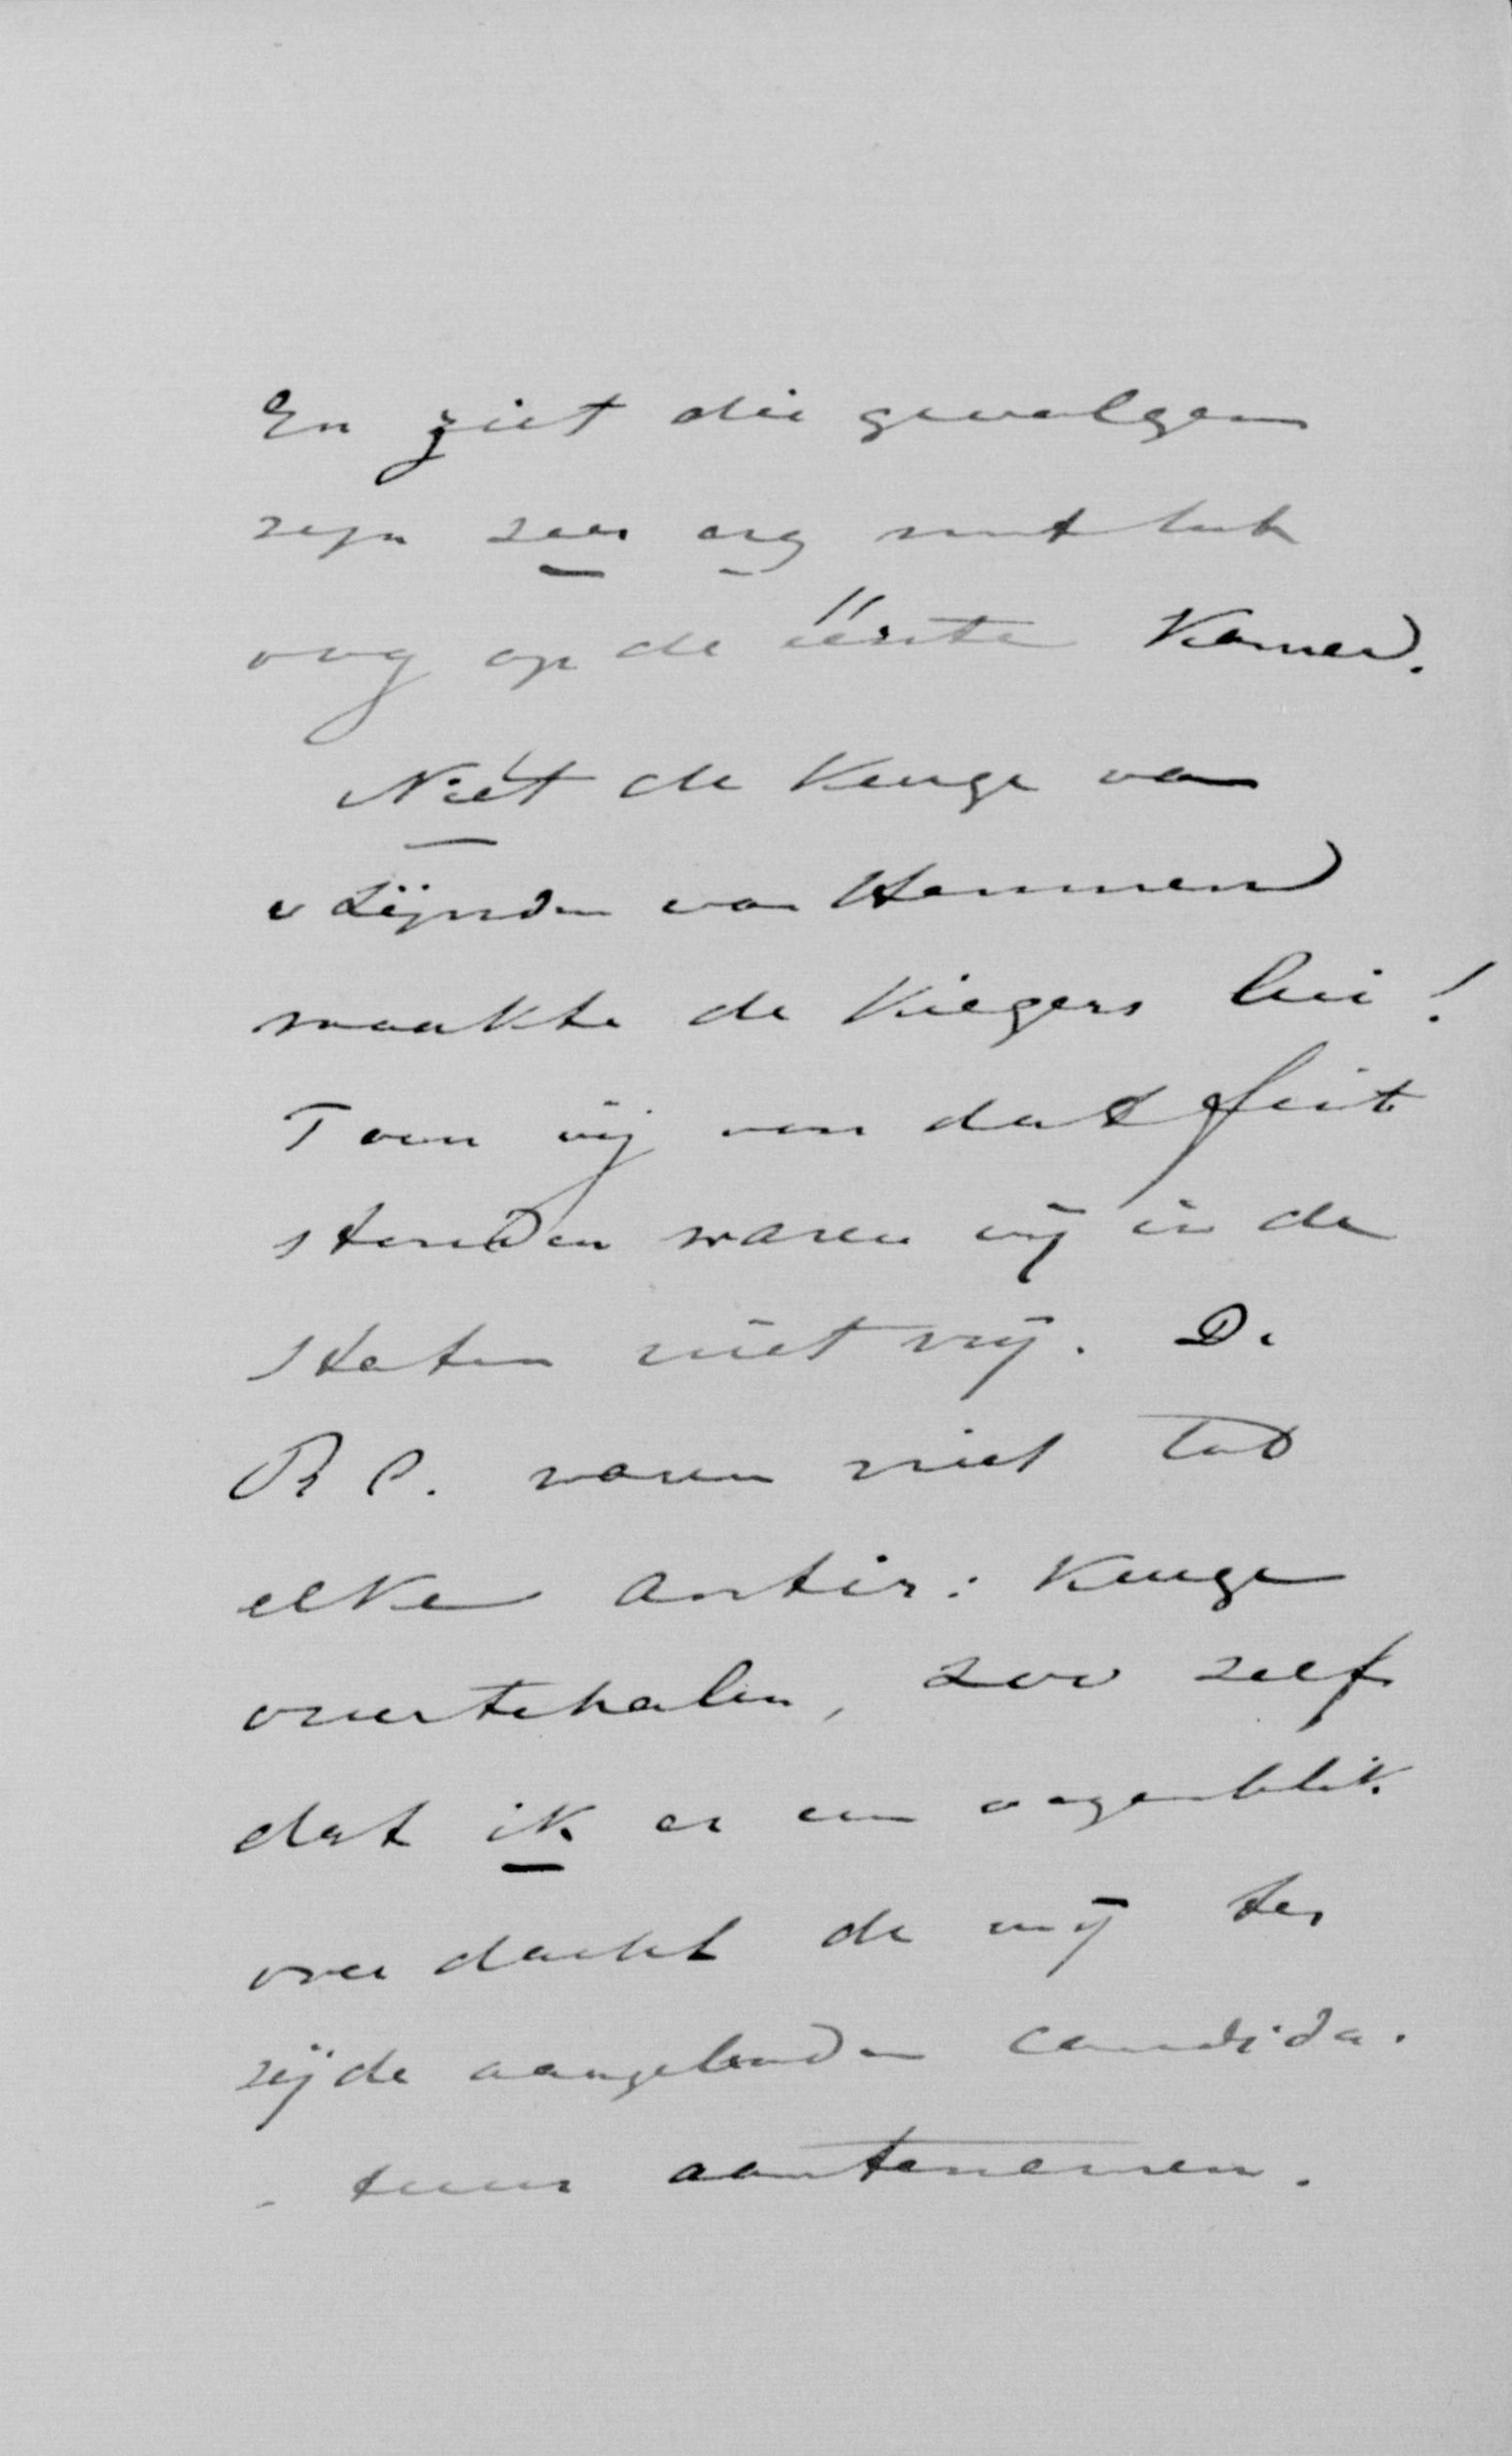 En ziet die gevolgen
zijn zeer erg met het
oog op de éérste Kamer.
Niét de Keuze van
v Lijnden van Hemmen
maakte de Kiezers lui!
Toen wij voor dat feit
stonden waren wij in de
Staten niet vrij. De
R C. waren niet tot
elke antir: Keuze
overtehalen, zoo zelfs
dat ik er een oogenblik
over dacht de mij ter
zijde aangeboden candida-
- tuur aantenemen.